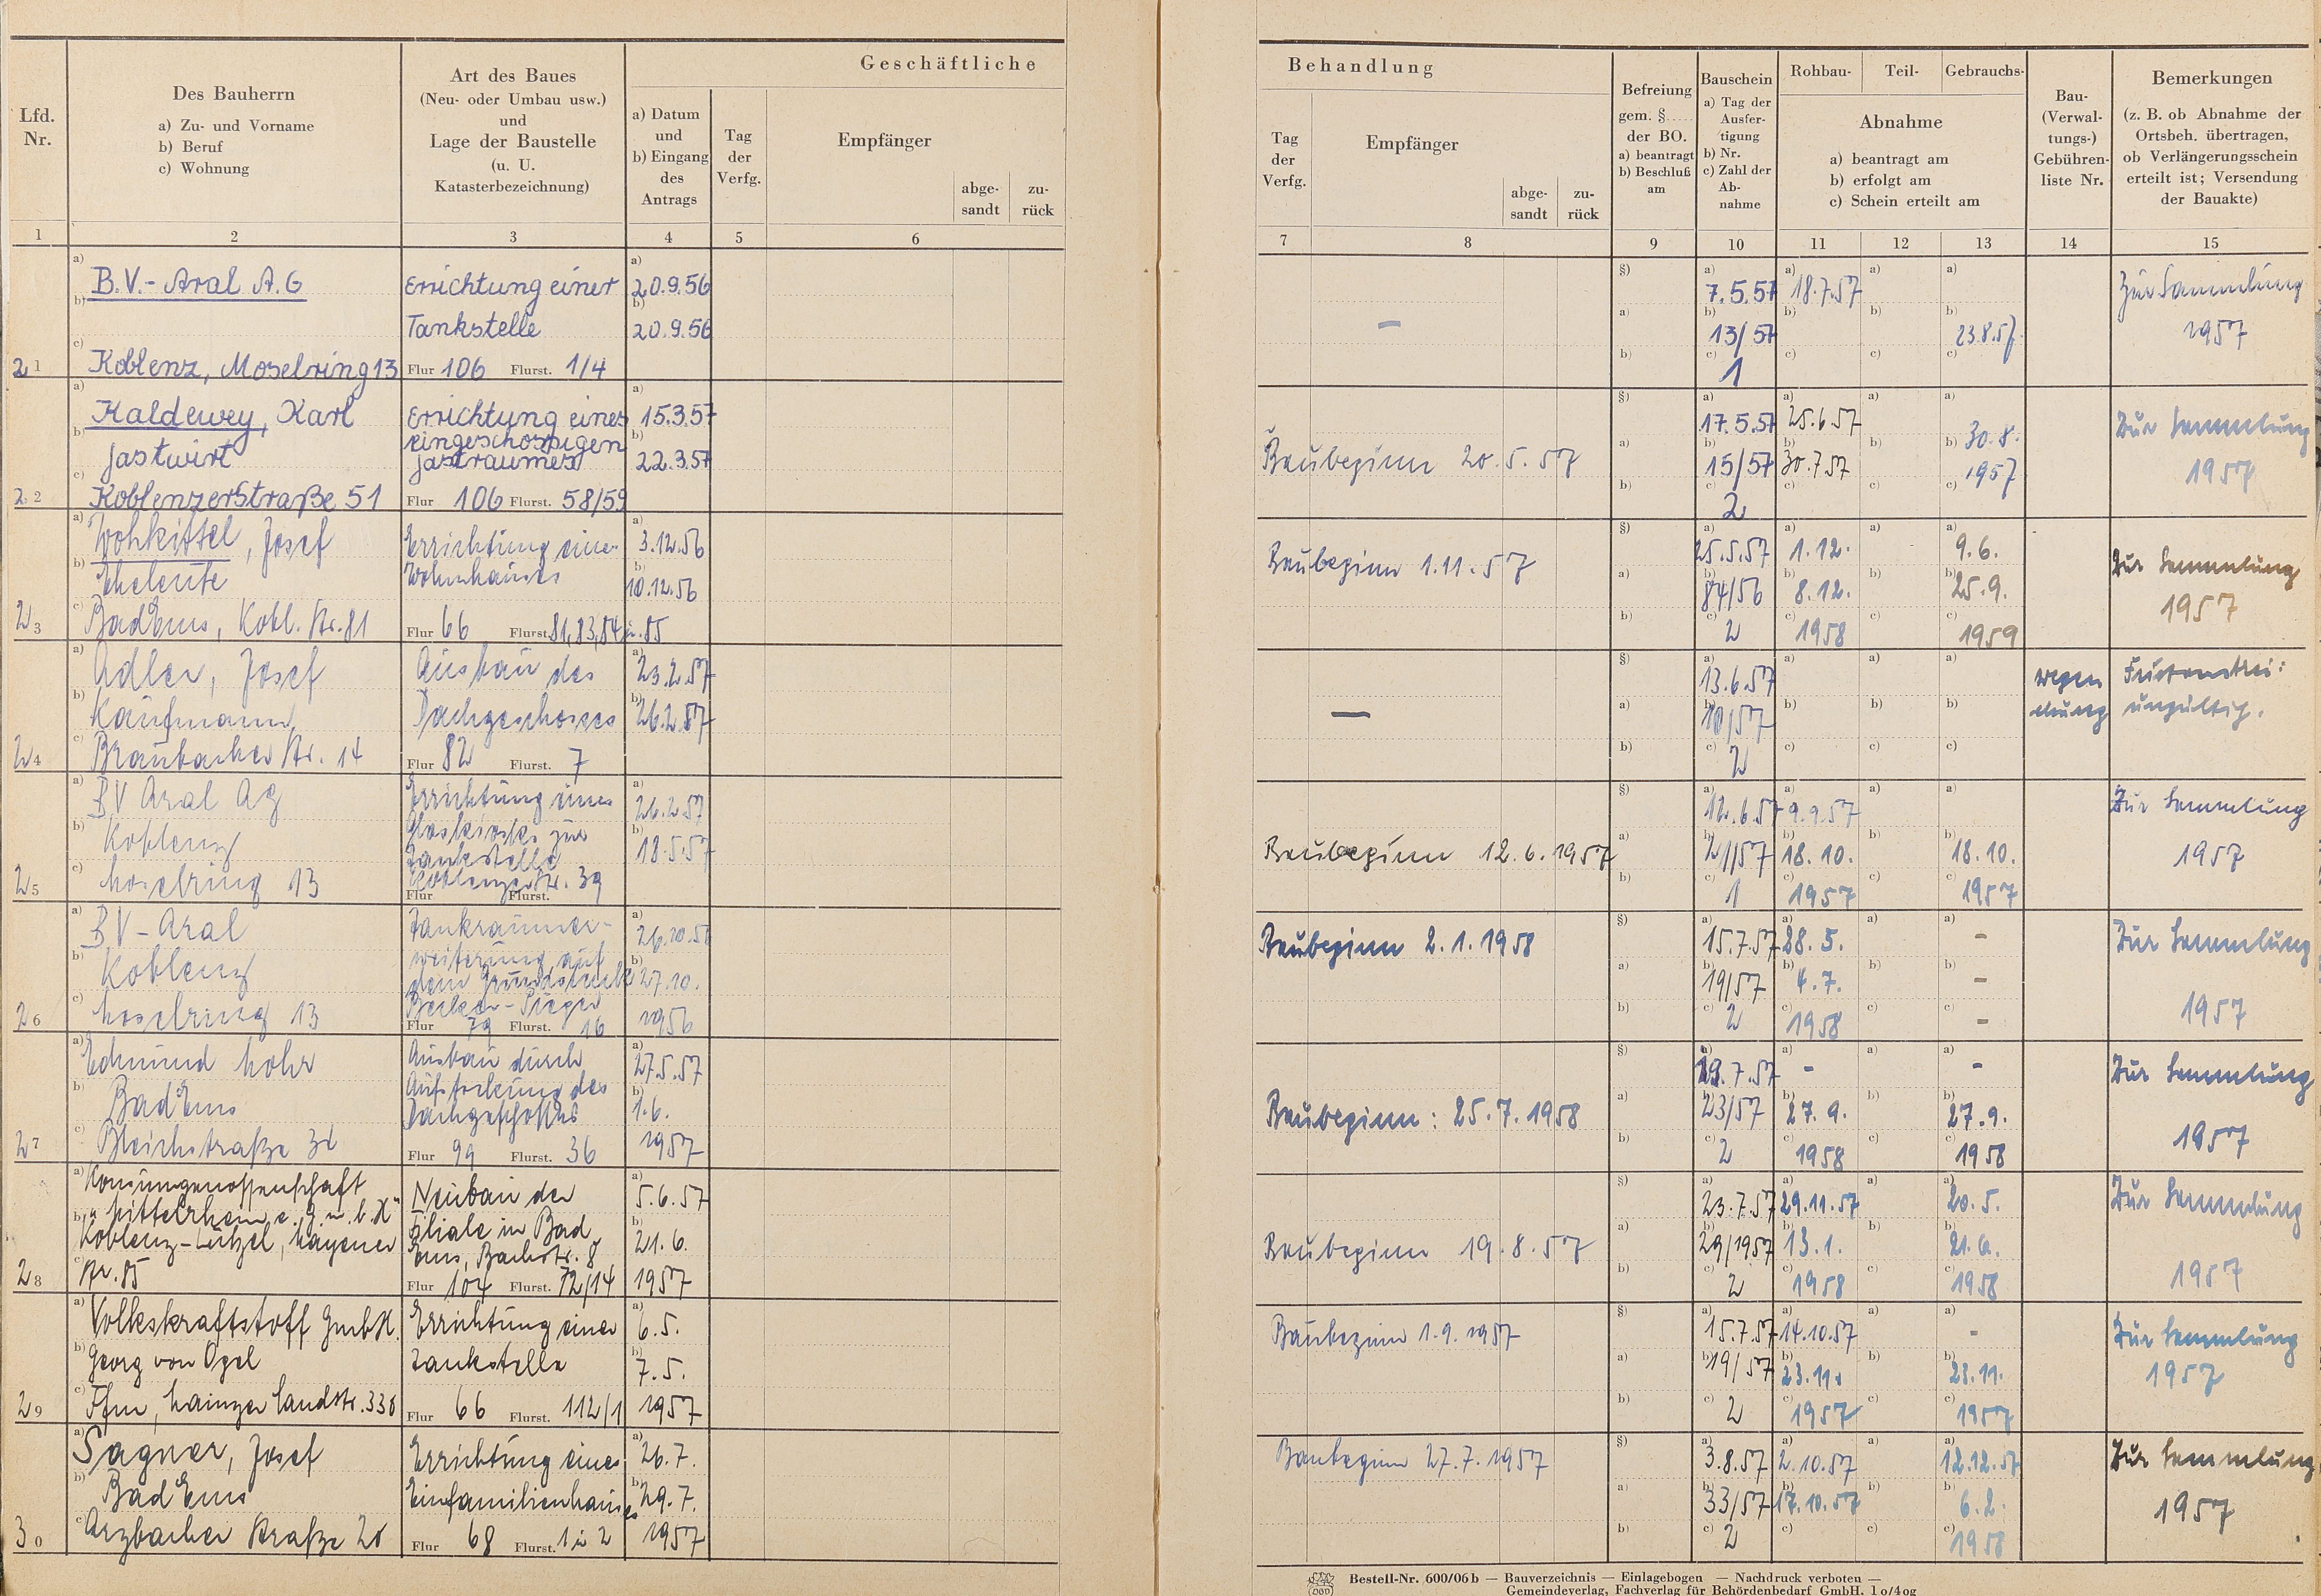 Geschäftliche
Lfd. Nr.
Des Bauherrn
a) Zu- und Vorname
b) Beruf
c) Wohnung
Art des Baues
(Neu- oder Umbau usw.)
und
Lage der Baustelle
(u. U.
Katasterbezeichnung)
a) Datum
und
b) Eingang
des
Antrags
Tag
der
Verfg.
Empfänger
abge-
sandt
zu-
rück
1 2 3 4 5 6
Behandlung
Tag
der
Verfg.
Empfänger
abge-
sandt
zu-
rück
Befreiung
gem. §.....
der BO.
a) beantragt
b) Beschluß
am
Bauschein
a) Tag der
Ausfer-
tigung
b) Nr.
c) Zahl der
Ab-
nahme
Rohbau- Teil- Gebrauchs-
Abnahme
a) beantragt am
b) erfolgt am
c) Schein erteilt am
Bau-
(Verwal-
tungs-)
Gebühren-
liste Nr.
Bemerkungen
(z. B. ob Abnahme der
Ortsbeh. übertragen,
ob Verlängerungsschein
erteilt ist; Versendung
der Bauakte)
7 8 9 10 11 12 13 14 15
21
a) B.V.- Aral A.G
c) Koblenz, Moselring 13
Errichtung einer
Tankstelle
Flur 106 Flurst. 1/4
a) 20.9.56
b) 20.9.56
–
a) 7.5.57
b) 13/57
c) 1
a) 18.7.57
b) 23.8.57
Zur Sammlung
1957
22
a) Kaldewey, Karl
b) Gastwirt
c) Koblenzerstraße 51
Errichtung eines
eingeschossigen
Gastraumes
Flur 106 Flurst. 58/59
a) 15.3.57
b) 22.3.57
Baubeginn 20.5.57
a) 17.5.57
b) 15/57
c) 2
a) 25.6.57
b) 30.7.57
b) 30.8.
c) 1957
Zur Sammlung
1957
23
a) Wohkittel, Josef
b) Eheleute
c) Bad Ems, Kobl. Str. 81
Errichtung eines
Wohnhauses
Flur 66 Flurst. 81,83,84 u. 85
a) 3.12.56
b) 10.12.56
Baubeginn 1.11.57
a) 25.5.57
b) 84/56
c) 2
a) 1.12.
b) 8.12.
c) 1958
a) 9.6.
b) 25.9.
c) 1959
Zur Sammlung
1957
24
a) Adler, Josef
b) Kaufmann
c) Braubacher Str. 14
Ausbau des
Dachgeschosses
Flur 82 Flurst. 7
a) 23.2.57
b) 26.2.57
–
a) 13.6.57
b) 10/57
c) 2
wegen Fristenstrei:
chung ungültig.
25
a) BV Aral AG
b) Koblenz
c) Moselring 13
Errichtung eines
Glaskiosks zur
Tankstelle
Koblenzerstr. 39
Flur Flurst.
a) 26.2.57
b) 18.5.57
Baubeginn 12.6.1957
a) 12.6.57
b) 21/57
c) 1
a) 9.9.57
b) 18.10.
c) 1957
b) 18.10.
c) 1957
Zur Sammlung
1957
26
a) BV-Aral
b) Koblenz
c) Moselring 13
Tankraumer-
weiterung auf
dem Grundstück
Becker-Pieper
Flur 79 Flurst. 16
a) 26.10.56
b) 27.10.
1956
Baubeginn 2.1.1958
a) 15.7.57
b) 19/57
c) 2
a) 28.5.
b) 4.7.
c) 1958
–
–
–
Zur Sammlung
1957
27
a) Edmund Mohr
b) Bad Ems
c) Bleichstraße 32
Ausbau durch
Aufstockung des
Dachgeschosses
Flur 99 Flurst. 36
a) 27.5.57
b) 1.6.
1957
Baubeginn: 25.7.1958
a) 19.7.57
b) 23/57
c) 2
a) –
b) 27.9.
c) 1958
a) –
b) 27.9.
c) 1958
Zur Sammlung
1957
28
a) Konsumgenossenschaft
b) "Mittelrhein e.G.m.b.H"
Koblenz-Lützel, Mayener
c) Str. 85
Neubau der
Filiale in Bad
Ems, Bachstr. 8
Flur 104 Flurst. 72/14
a) 5.6.57
b) 21.6.
1957
Baubeginn 19.8.57
a) 23.7.57
b) 29/1957
c) 2
a) 29.11.57
b) 13.1.
c) 1958
a) 20.5.
b) 21.6.
c) 1958
Zur Sammlung
1957
29
a) Volkskraftstoff GmbH.
b) Georg von Opel
c) Ffm, Mainzer Landstr. 330
Errichtung einer
Tankstelle
Flur 66 Flurst. 112/1
a) 6.5.
b) 7.5.
1957
Baubeginn 1.9.1957
a) 15.7.57
b) 19/57
c) 2
a) 14.10.57
b) 23.11.
c) 1957
a) –
b) 23.11.
c) 1957
Zur Sammlung
1957
30
a) Sagner, Josef
b) Bad Ems
c) Arzbacher Straße 20
Errichtung eines
Einfamilienhauses
Flur 68 Flurst. 1 u 2
a) 26.7.
b) 29.7.
1957
Baubeginn 27.7.1957
a) 3.8.57
b) 33/57
c) 2
a) 2.10.57
b) 17.10.57
a) 12.12.57
b) 6.2.
c) 1958
Zur Sammlung
1957
Bestell-Nr. 600/06 b — Bauverzeichnis — Einlagebogen — Nachdruck verboten —
Gemeindeverlag, Fachverlag für Behördenbedarf GmbH. 10/4 og